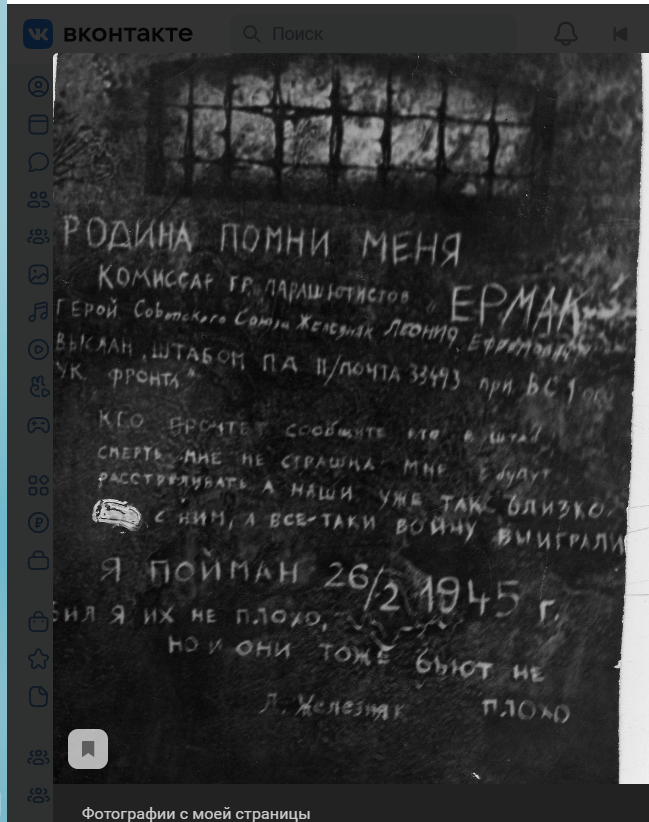 вконтакте
Поиск
РОДИНА ПОМНИ МЕНЯ
КОМИССАР ГР. ПАРАШЮТИСТОВ „ЕРМАК"
ГЕРОЙ Советского Союза Железняк ЛЕОНИД
ВЫСЛАН ШТАБОМ П/ПОЧТА 33493 при
УК. ФРОНТА"
КТО ПРОЧТЕТ СООБЩИТЕ ЭТО В ШТАБ
СМЕРТЬ МНЕ НЕ СТРАШНА МНЕ будут
РАССТРЕЛИВАТЬ А НАШИ УЖЕ ТАК БЛИЗКО.
С НИМ, А ВСЕ-ТАКИ ВОЙНУ ВЫИГРАЛИ
Я ПОЙМАН 26/2 1945 г.
БИЛ Я ИХ НЕ ПЛОХО,
НО И ОНИ ТОЖЕ БЬЮТ НЕ
ПЛОХО
Л. Железняк
Фотографии с моей страницы